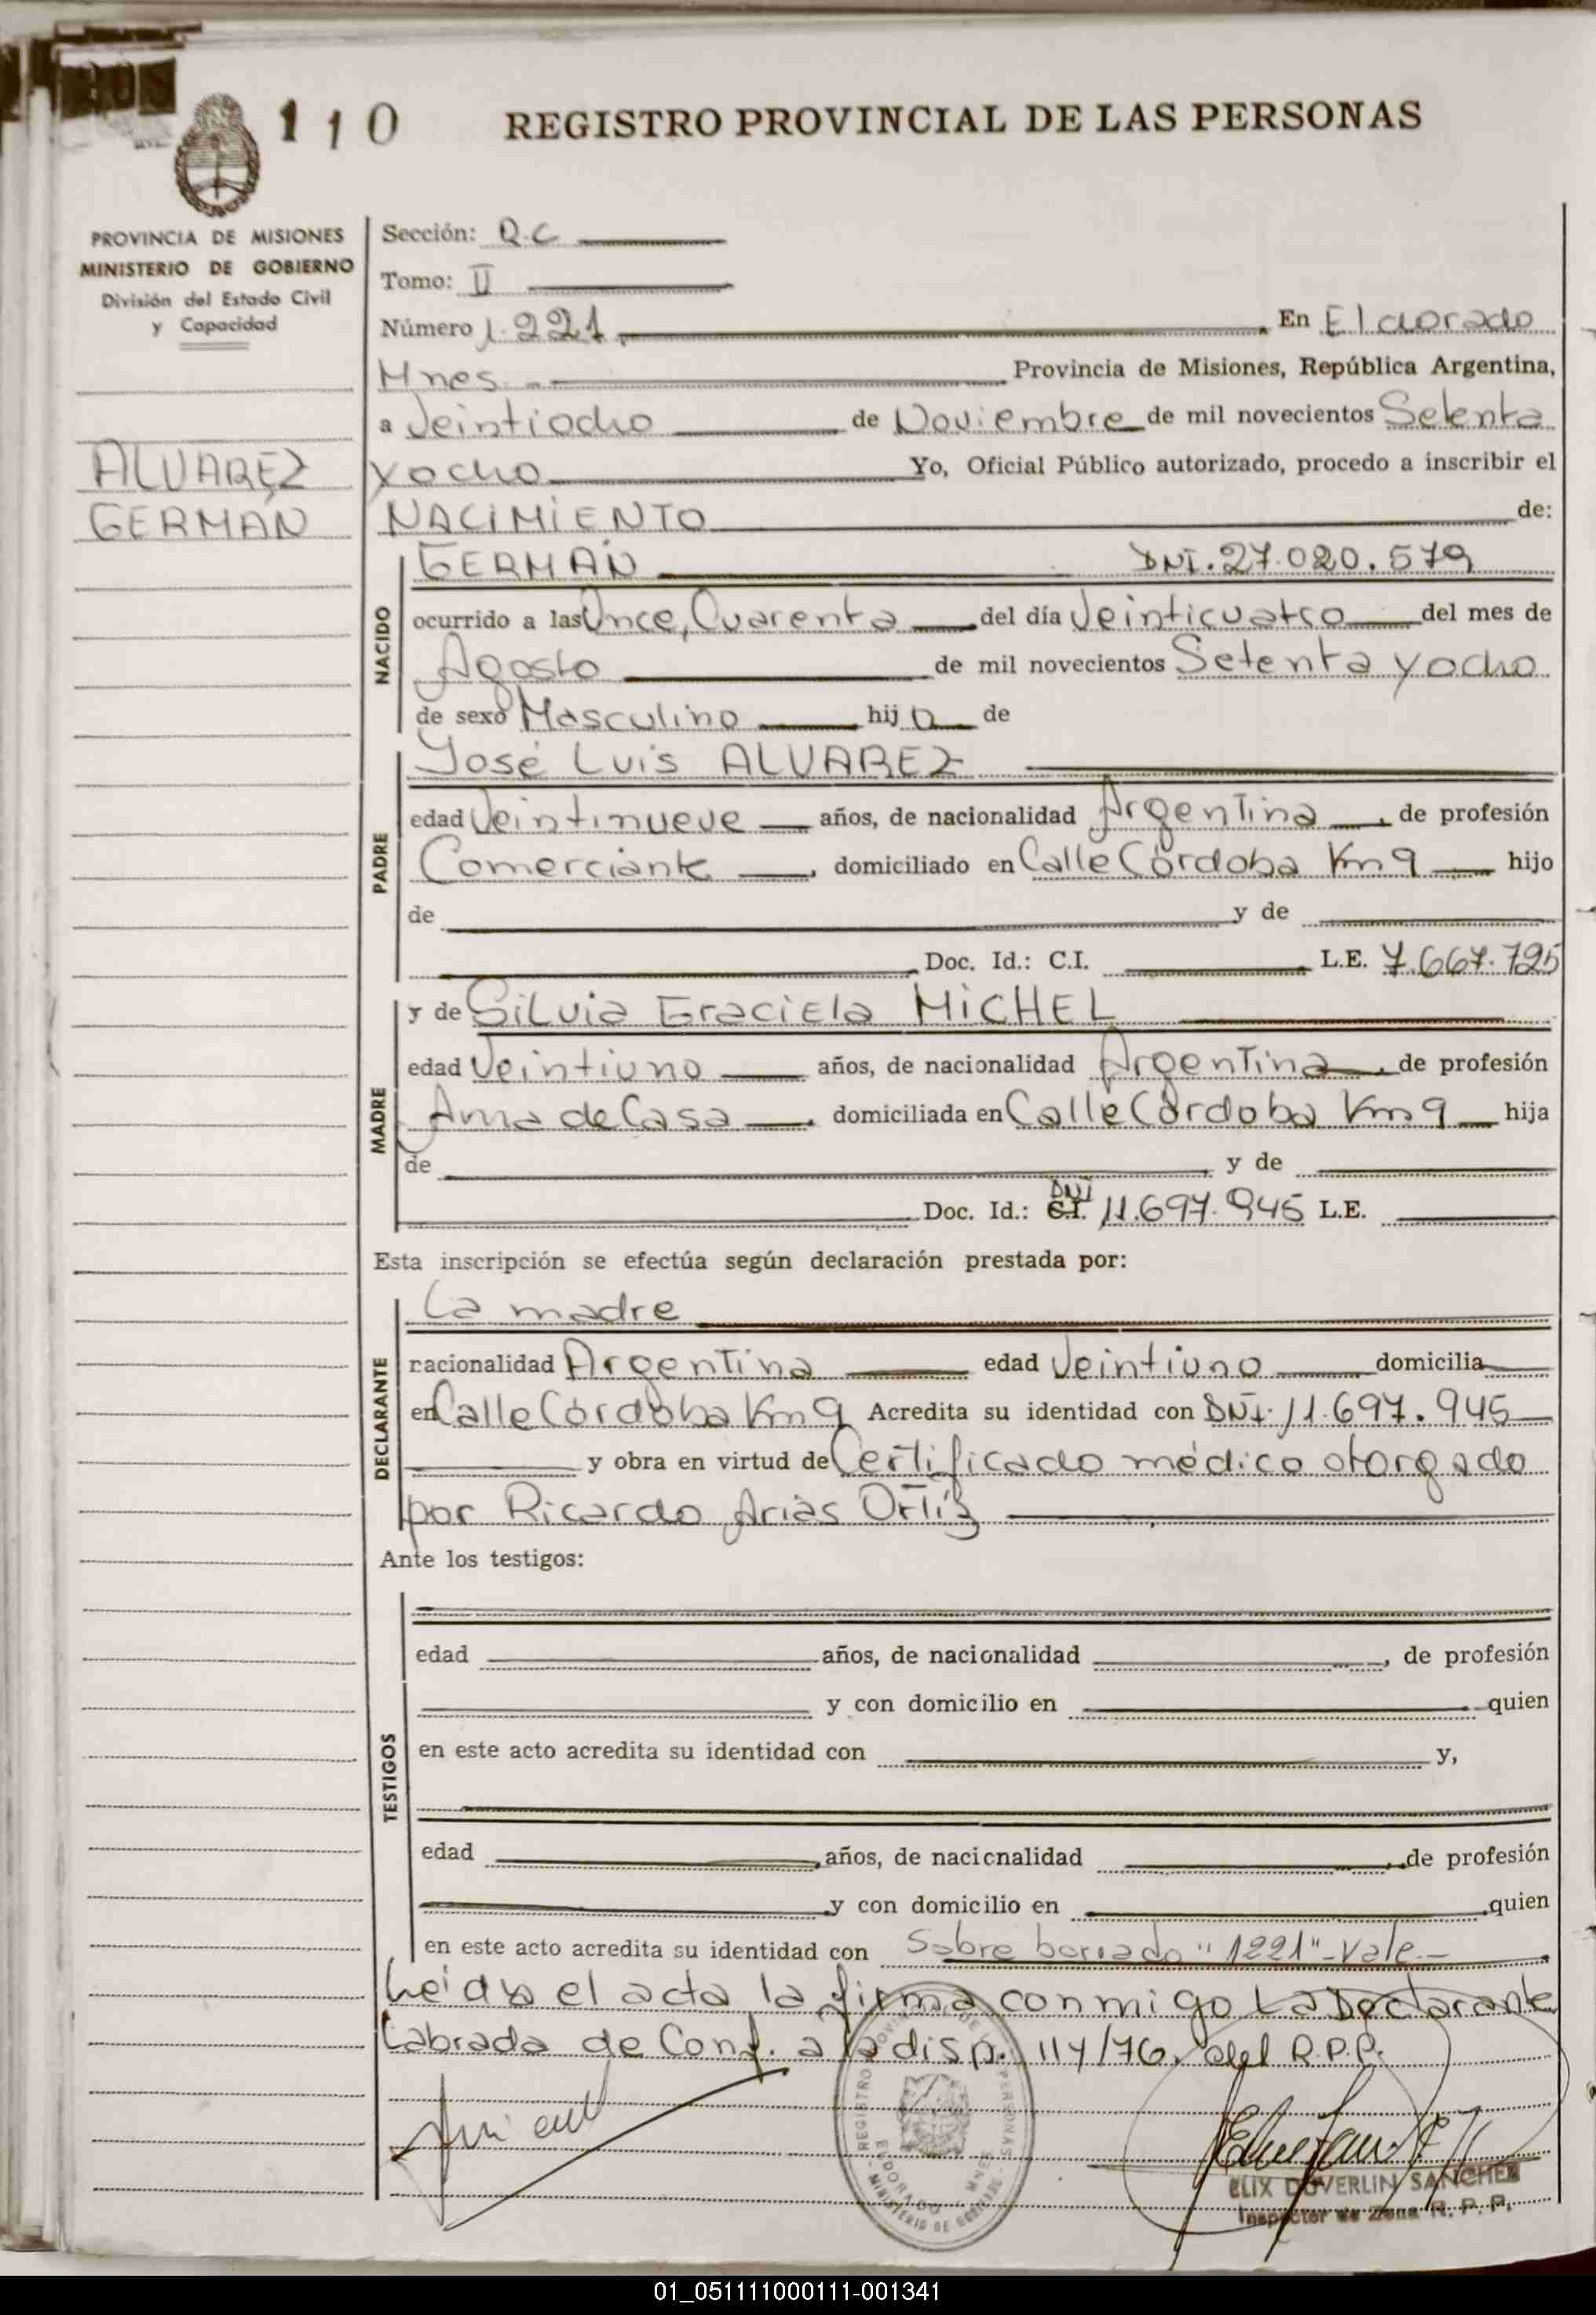 110
REGISTRO PROVINCIAL DE LAS PERSONAS
PROVINCIA DE MISIONES
MINISTERIO DE GOBIERNO
División del Estado Civil
y Capacidad
ALVAREZ
GERMÁN
Sección: Q.C
Tomo: II
Número 1.221 En Eldorado
Mnes Provincia de Misiones, República Argentina,
a Veintiocho de Noviembre de mil novecientos Setenta
y ocho Yo, Oficial Público autorizado, procedo a inscribir el
NACIMIENTO de:
NACIDO
GERMÁN DNI. 27.020.579
ocurrido a las Once, Cuarenta del día Veinticuatro del mes de
Agosto de mil novecientos Setenta y ocho
de sexo Masculino hij o de
PADRE
José Luis ALVAREZ
edad Veintinueve años, de nacionalidad Argentina, de profesión
Comerciante, domiciliado en Calle Córdoba Km 9 hijo
de y de
Doc. Id.: C.I. L.E. 7.667.795
MADRE
y de Silvia Graciela MICHEL
edad Veintiuno años, de nacionalidad Argentina, de profesión
Ama de Casa, domiciliada en Calle Córdoba Km 9 hija
de y de
Doc. Id.: C.I. DNI 11.697.945 L.E.
Esta inscripción se efectúa según declaración prestada por:
DECLARANTE
La madre
nacionalidad Argentina edad Veintiuno domicilia
en Calle Córdoba Km 9 Acredita su identidad con DNI. 11.697.945
y obra en virtud de Certificado médico otorgado
por Ricardo Arias Ortiz
Ante los testigos:
TESTIGOS
edad años, de nacionalidad, de profesión
y con domicilio en quien
en este acto acredita su identidad con y,
edad, años, de nacionalidad, de profesión
y con domicilio en, quien
en este acto acredita su identidad con Sobre borrado "1221" - Vale -
Leída el acta la firma conmigo La Declarante
Labrada de Conf. a la disp. 114/76, del R.P.P.
REGISTRO PROVINCIAL DE LAS PERSONAS
ELDORADO - MNES
MINISTERIO DE GOBIERNO
ELIX DUVERLIN SANCHEZ
Inspector de Zona R. P. P.
01_051111000111-001341